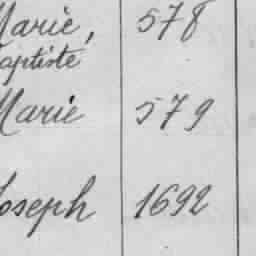 Marie, 578
Baptiste
Marie 579
Joseph 1692